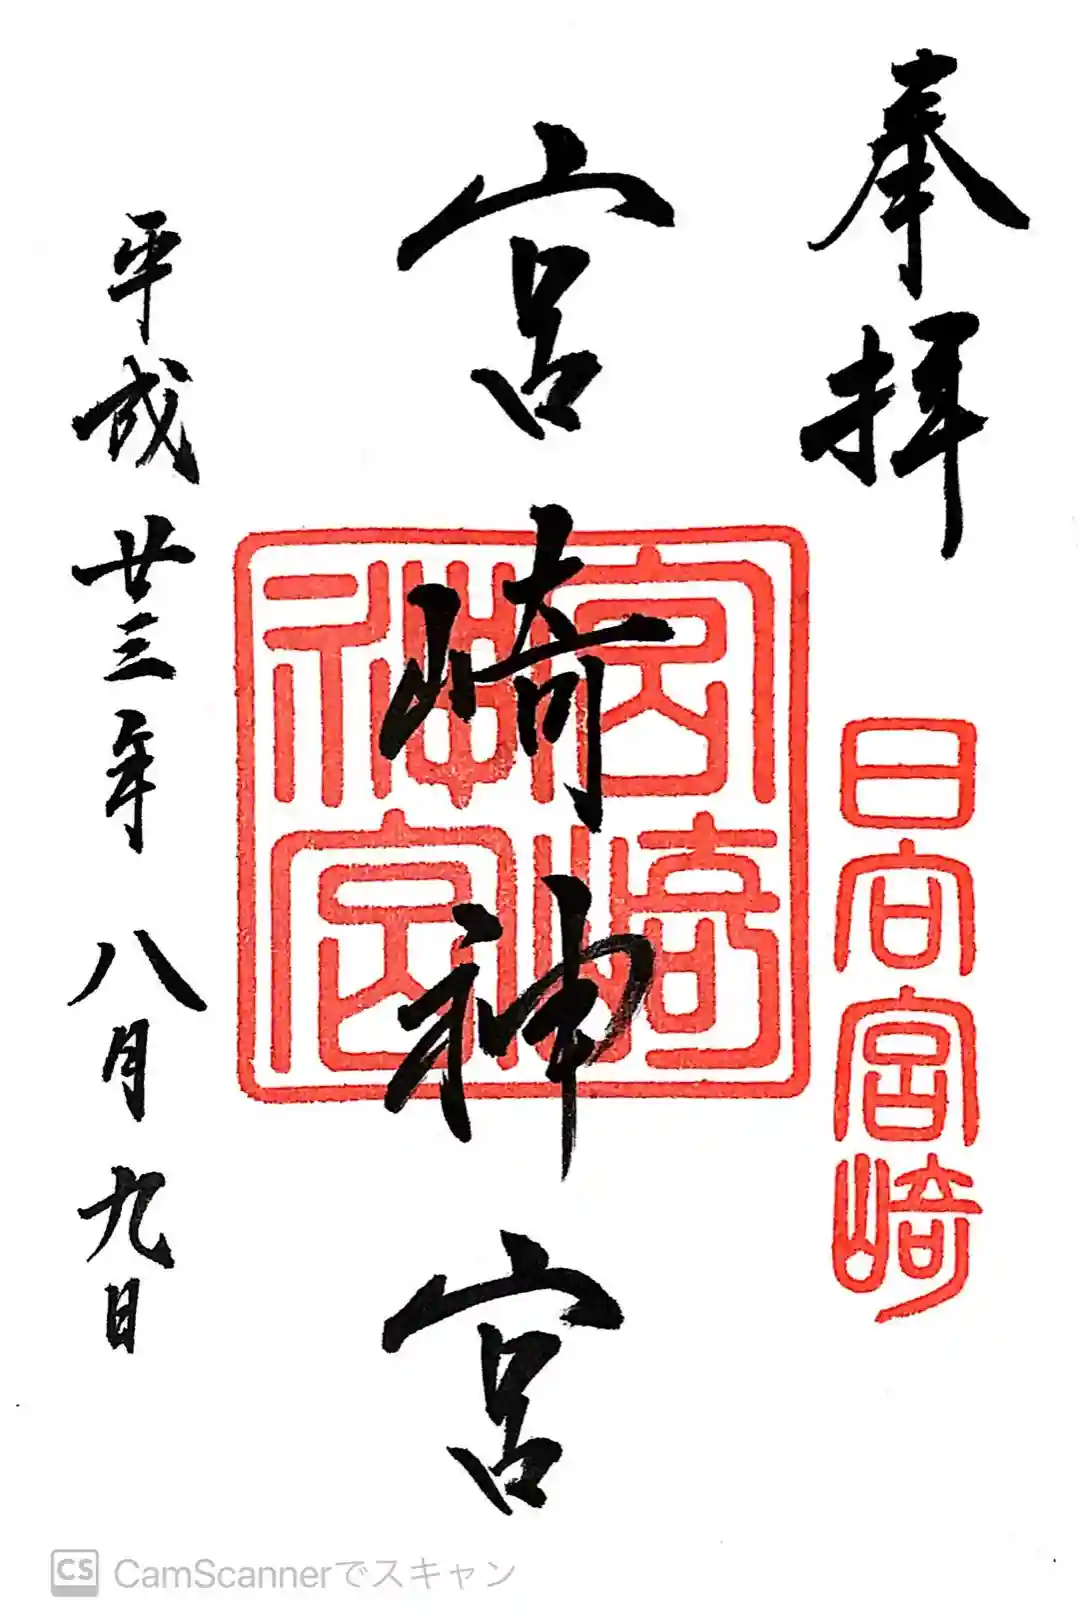 奉拝
日向宮崎
宮崎神宮
宮崎神宮
平成廿三年八月九日
CS CamScannerでスキャン